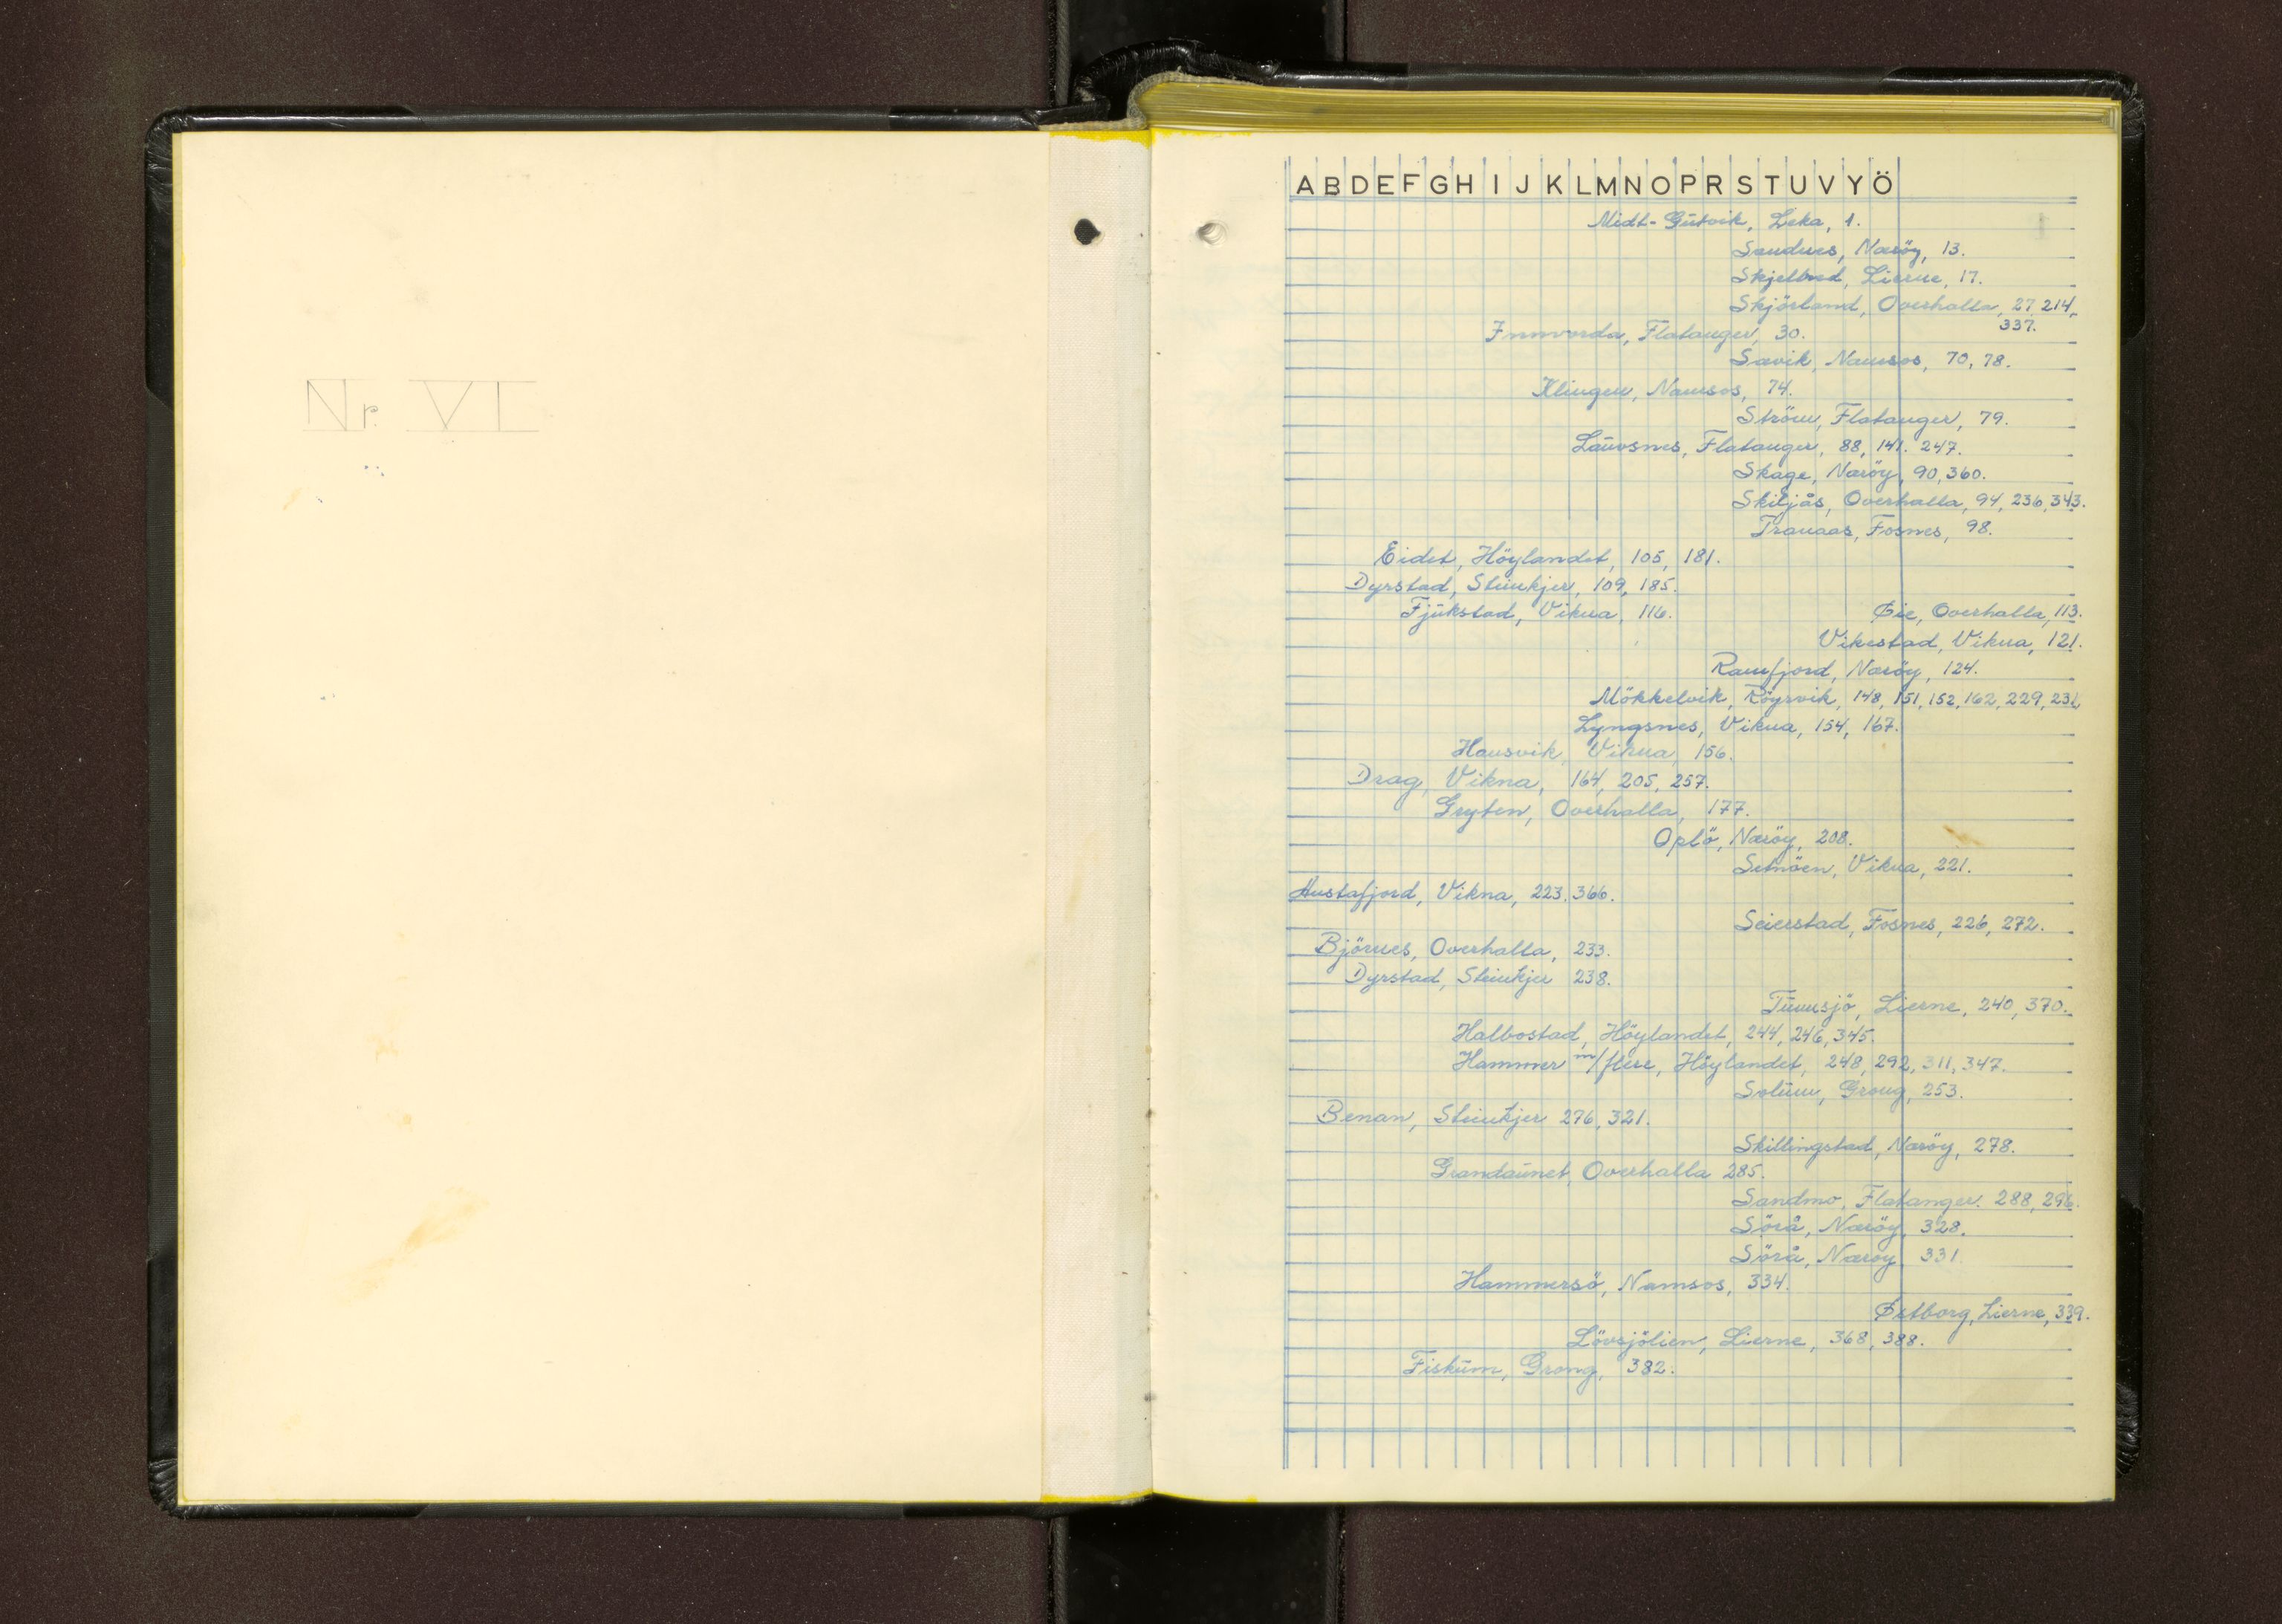 Nr. VI
A B D E F G H I J K L M N O P R S T U V Y Ö
Midt-Gutvik, Leka, 1.
Sandnes, Næröy, 13.
Skjelbred, Lierne, 17.
Skjörland, Overhalla, 27, 214,
337.
Innvorda, Flatanger, 30.
Savik, Namsos, 70, 78.
Klingen, Namsos, 74.
Ström, Flatanger, 79.
Lauvsnes, Flatanger, 88, 141. 247.
Skage, Næröy, 90, 360.
Skiljås, Overhalla, 94, 236, 343.
Tranaas, Fosnes, 98.
Eidet, Höylandet, 105, 181.
Dyrstad, Steinkjer, 109, 185.
Fjukstad, Vikna, 116. Øie, Overhalla, 113.
Vikestad, Vikna, 121.
Ramfjord, Næröy, 124.
Mökkelvik, Röyrvik, 148, 151, 152, 162, 229, 231,
Lyngsnes, Vikna, 154, 167.
Hansvik, Vikna, 156.
Drag, Vikna, 164, 205, 257.
Gryten, Overhalla, 177.
Oplö, Næröy, 208.
Setnöen, Vikna, 221.
Austafjord, Vikna, 223. 366.
Seierstad, Fosnes, 226, 272.
Björnes, Overhalla, 233.
Dyrstad, Steinkjer 238.
Tunnsjö, Lierne, 240, 370.
Halbostad, Höylandet, 244, 246, 345.
Hammer m/flere, Höylandet, 248, 292, 311, 347.
Solum, Grong, 253.
Benan, Steinkjer 276, 321.
Skillingstad, Næröy, 278.
Grandaunet, Overhalla 285.
Sandmo, Flatanger. 288, 296.
Sörå, Næröy, 328.
Sörå, Nærøy, 331.
Hammersö, Namsos, 334.
Østborg, Lierne, 339.
Lövsjölien, Lierne, 368, 388.
Fiskum, Grong, 382.